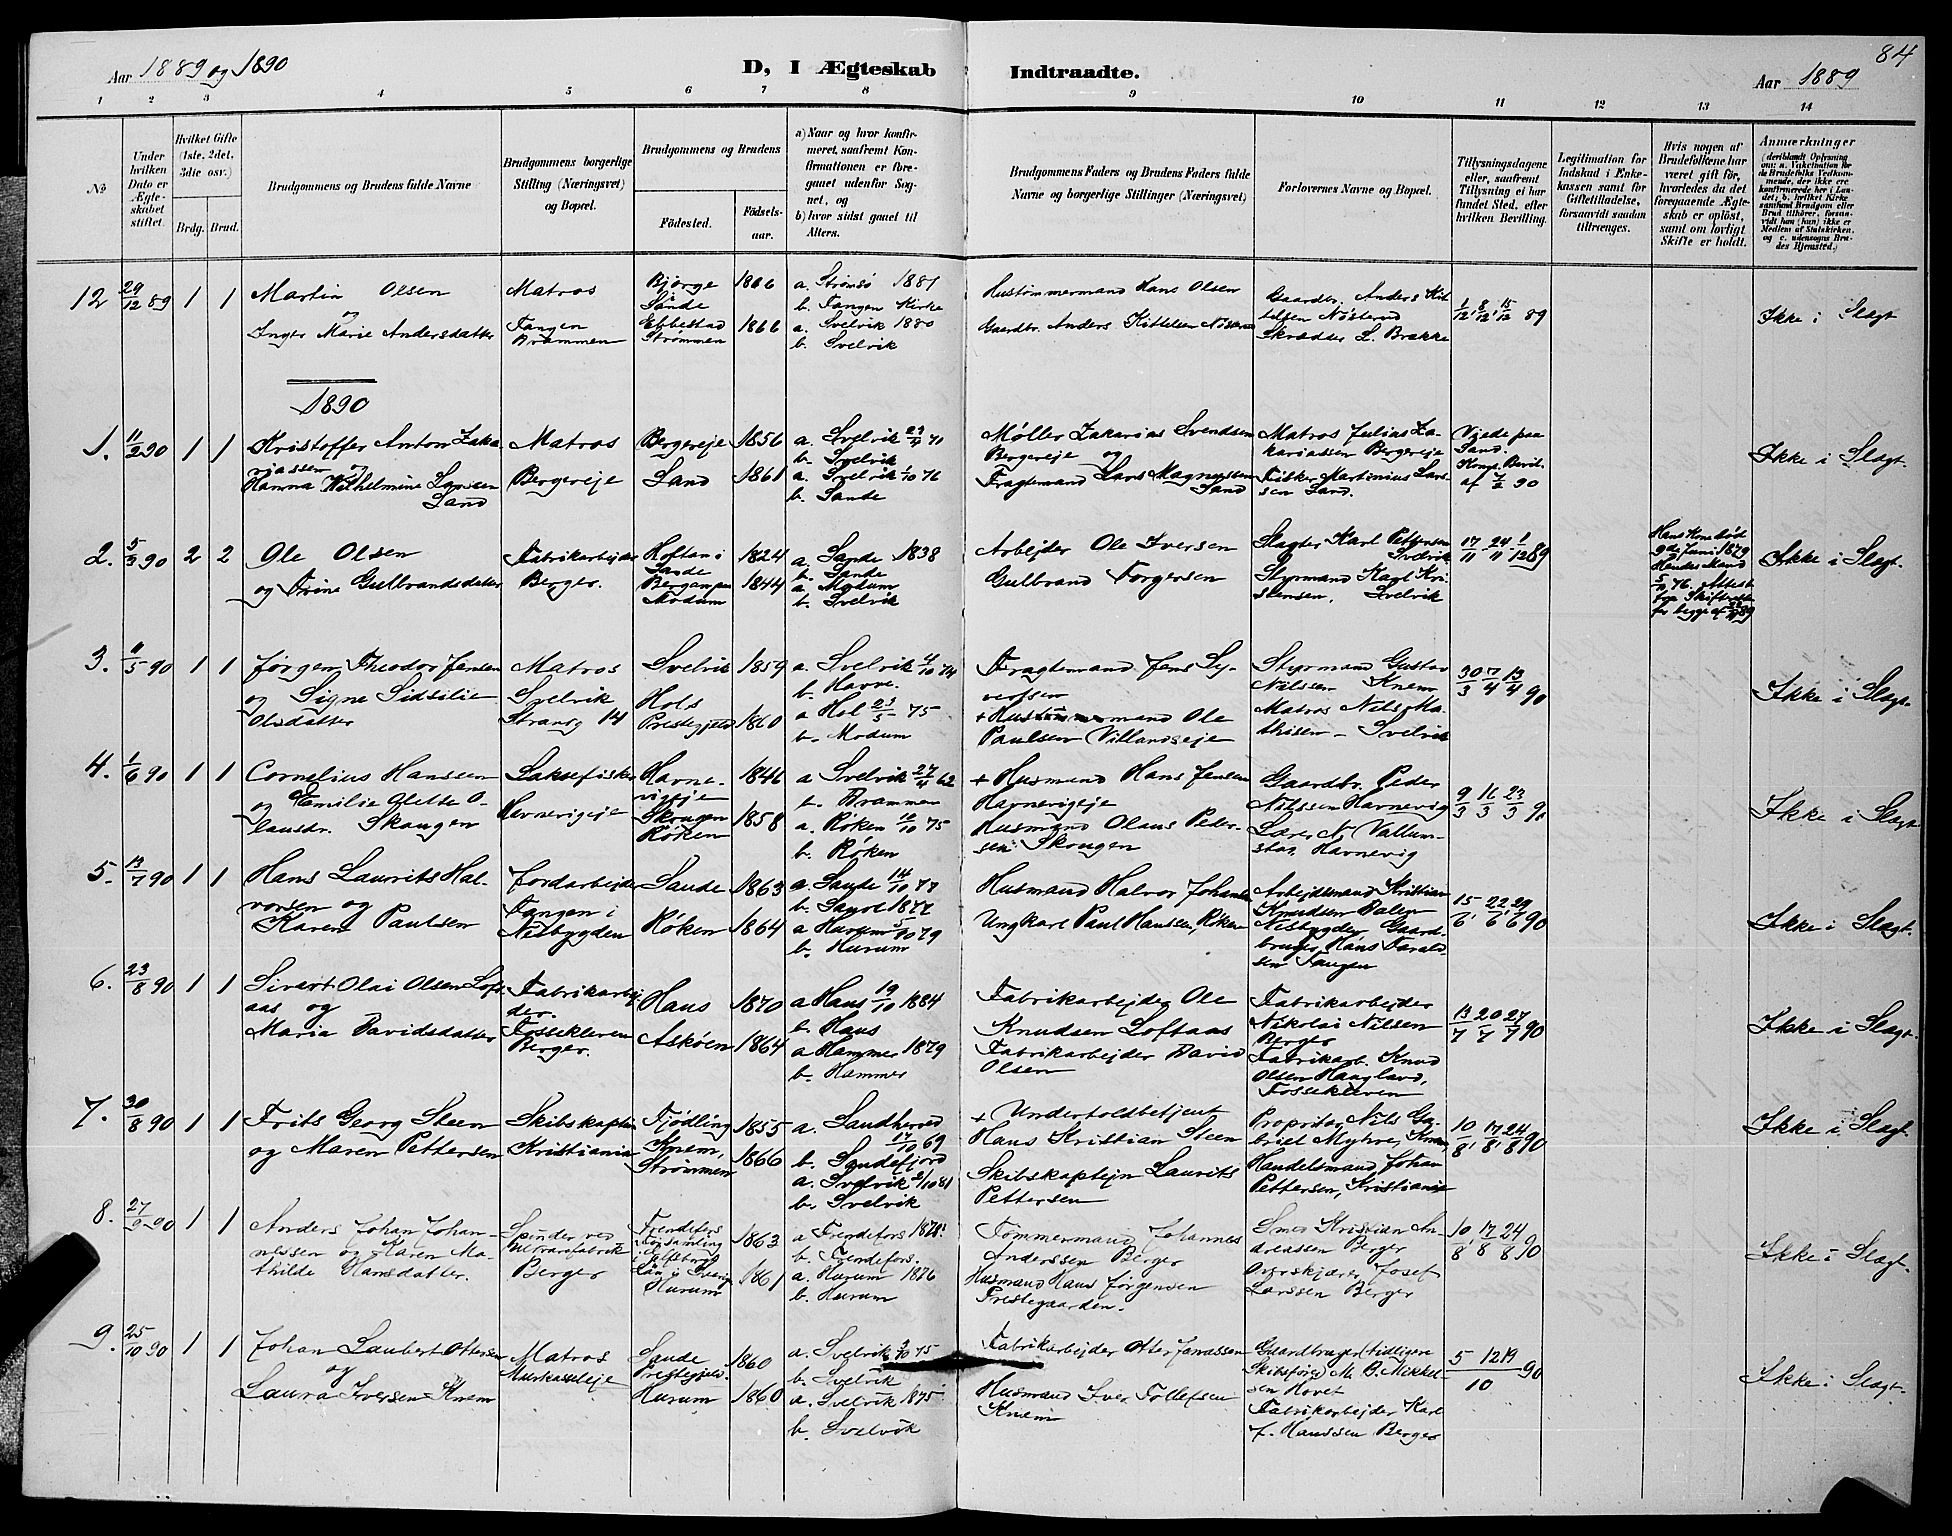 84
Aar 1889 og 1890
D, I Ægteskab Indtraadte.
Aar 1889
1 2 3 4 5 6 7 8 9 10 11 12 13 14
No
Under hvilken Dato er Ægteskabet stiftet.
Hvilket Gifte (1ste, 2det, 3die osv.)
Brdg. Brud.
Brudgommens og Brudens fulde Navne
Brudgommens borgerlige Stilling (Næringsvei) og Bopæl.
Brudgommens og Brudens
Födested. Födselsaar.
a) Naar og hvor konfirmeret, saafremt Konfirmationen er foregaaet udenfor Sognet, og
b) hvor sidst gaaet til Alters.
Brudgommens Faders og Brudens Faders fulde Navne og borgerlige Stillinger (Næringsvei)
Forlovernes Navne og Bopæl.
Tillysningsdagene eller, saafremt Tillysning ei har fundet Sted, efter hvilken Bevilling.
Legitimation for Indskud i Enkekassen samt for Giftetilladelse, forsaavidt saadan tiltrænges.
Hvis nogen af Brudefolkene har været gift för, hvorledes da det foregaaende Ægteskab er oplöst, samt om lovligt Skifte er holdt.
Anmærkninger
(deriblandt Oplysning om: a. Vakcination for de Brudefolks Vedkommende, der ikke ere konfirmerede her i Landet; b. hvilket Kirkesamfund Brudgom eller Brud tilhörer, forsaavidt han (hun) ikke er Medlem af Statskirken, og c. udensogns Brudes Hjemsted.)
12 29/12 89 1 1
Martin Olsen
og
Inger Marie Andersdatter
Matros
Tangen
Drammen
Bjørge
Sande
Ebbestad
Strømmen
1866
1866
a. Strømsø 1881
b. Tangen Kirke
a. Svelvik 1880
b. Svelvik
Hustømmermand Hans Olsen
Gaardbr. Anders Kittelsen
Gaardbr. Anders Kittelsen
Skrædder L. Brække
1/12, 8/12, 15/12 89
Ikke i Slægt
1890
1. 11/2 90 1 1
Kristoffer Anton Zakariassen og
Hanna Wilhelmine Larsen
Sand
Matros
Bergereje
Bergereje
Sand
1856
1861
a. Svelvik 70
b. Svelvik
a. Svelvik 1/10 76
b. Sande
Møller Zakarias Svendsen
Bergereje og
Fragtemand Lars Magnussen
Sand
Matros Julius Zakariassen Bergereje
Fisker Martinius Larssen Sand.
Viede paa
Sand.
Kongl. Bevil.
af 90
Ikke i Slægt.
2. 5/3 90 2 2
Ole Olsen
og Trine Gulbrandsdatter
Fabrikarbejder
Berger.
Hoftan i
Sande
Modum
1824
1844
a. Sande 1838
b. Sande
a. Modum
b. Svelvik
Arbejder Ole Iversen
Gulbrand Torgersen
Slagter Karl Pettersen
Svelvik
Styrmand Karl Kristensen, Svelvik
17/11 24/11 1/12 89
Hans Kone død
9de Juni 1879
Hendes Mand
76. Attest
fra Skifteretten
for begge af
Ikke i Slægt.
3. 11/5 90 1 1
Jørgen Theodor Jensen
og Signe Sidsilie
Olsdatter
Matros
Svelvik
Strandg 14
Svelvik
Hols
Prestegjeld
1859
1860
a. Svelvik 4/10 74
b. Havre.
a Hol 23/5 75
b. Modum
Fragtemand Jens Syvertsen
+ Hustømmermand Ole
Paulsen Villandseje
Styrmand Gustav
Nilssen Knem
Matros Nils Mathisen - Svelvik
30/3 7/4 13/4 90
Ikke i Slægt.
4. 1/6 90 1 1
Cornelius Hanssen
og Emilie Olette Olausdr. Skougen
Laksefisker
Havnevigeje
Havnevigeje
Skougen
Røken
1846
1858
a Svelvik 27/4 62
b. Drammen
a. Røken 10/10 75
b. Røken
+ Husmand Hans Jensen
Havnevigeje
Husmand Olaus Pedersen Skougen
Gaardbr. Peder
Nilssen Havnevig
Havnevig
9/3 16/3 23/3 90
Ikke i Slægt.
5. 13/7 90 1 1
Hans Laurits Halvorsen og
Karen Paulsen
Jordarbejder
Tangen i
Nesbygden
Sande
Røken
1863
1864
a. Sande 14/10 77
b. Sande 1877
a Hurum 5/10 79
b. Hurum
Husmand Halvor Johannesen
Ungkarl Paul Hansen, Røken
Arbejdsmand Kristian
Knudsen Dalen
Nesbygden Gaardbruger Hans Taraldsen Tangen
15/6, 22/6, 29/6 90
Ikke i Slægt.
6. 23/8 90 1 1
Sivert Olai Olsen Loftaas og
Maria Davidsdatter
Fabrikarbejder.
Fossekleven
Berger.
Haus
Askøen
1870
1864
a Haus 19/10 1884
b. Haus
a Hammer 1879
b. Hammer
Fabrikarbejder Ole
Knudsen Loftaas
Fabrikarbejder David
Olsen
Fabrikarbejder
Nikolai Nilsen
Berger
Fabrikarb. Knud
Olsen Haugland,
Fossekleven
13/7 20/7 27/7 90
Ikke i Slægt.
7. 30/8 90 1 1
Frits Georg Steen
og Maren Pettersen
Skibskaptein
Kristiania
Fjødling
Knem,
Strømmen
1855
1866
a. Sandherred
17/10 69
b. Sandefjord
a. Svelvik 2/10 81
b. Svelvik
+ Undertoldbetjent
Hans Kristian Steen
Skibskaptejn Laurits
Pettersen
Propritær Nils Gabriel Myhre, Knem,
Handelsmand Johan
Pettersen, Kristiania
10/8, 17/8, 24/8 90
Ikke i Slægt.
8. 27/9 90 1 1
Anders Johan Johannessen og Karen Mathilde Hansdatter.
Spinder ved
Uldvarefabrik
Berger
Frendefors
Forsamling
i Elfsborgs
Län i Sverig
Hurum
1863
1861
a Frendefors 1878.
b. Frendefors.
a. Hurum 1876
b. Hurum
Tømmermand Johannes
Anderssen Berger
Husmand Hans Jørgensen
Prestegaarden.
Smed Kristian Andreassen Berger
Overskjærer Josef
Larssen Berger
10/8, 17/8 24/8 90
Ikke i Slægt.
9. 25/10 90 1 1
Johan Laubert Ottersen
og
Laura Iversen Knem
Matros
Sande
Prestegjeld.
Hurum
1860
1860
a. Svelvik 75
b. Svelvik
a. Svelvik 1875
b. Svelvik
Fabrikarbejder Otter
Husmand Iver Tollefsen
Knem
Gaardbruger (tidligere
Skibsfører) M. B. Mikkelsen Hovet
Fabrikarbejder Karl
J. Hanssen Berger
5 12 19/10 90
Ikke i Slægt.